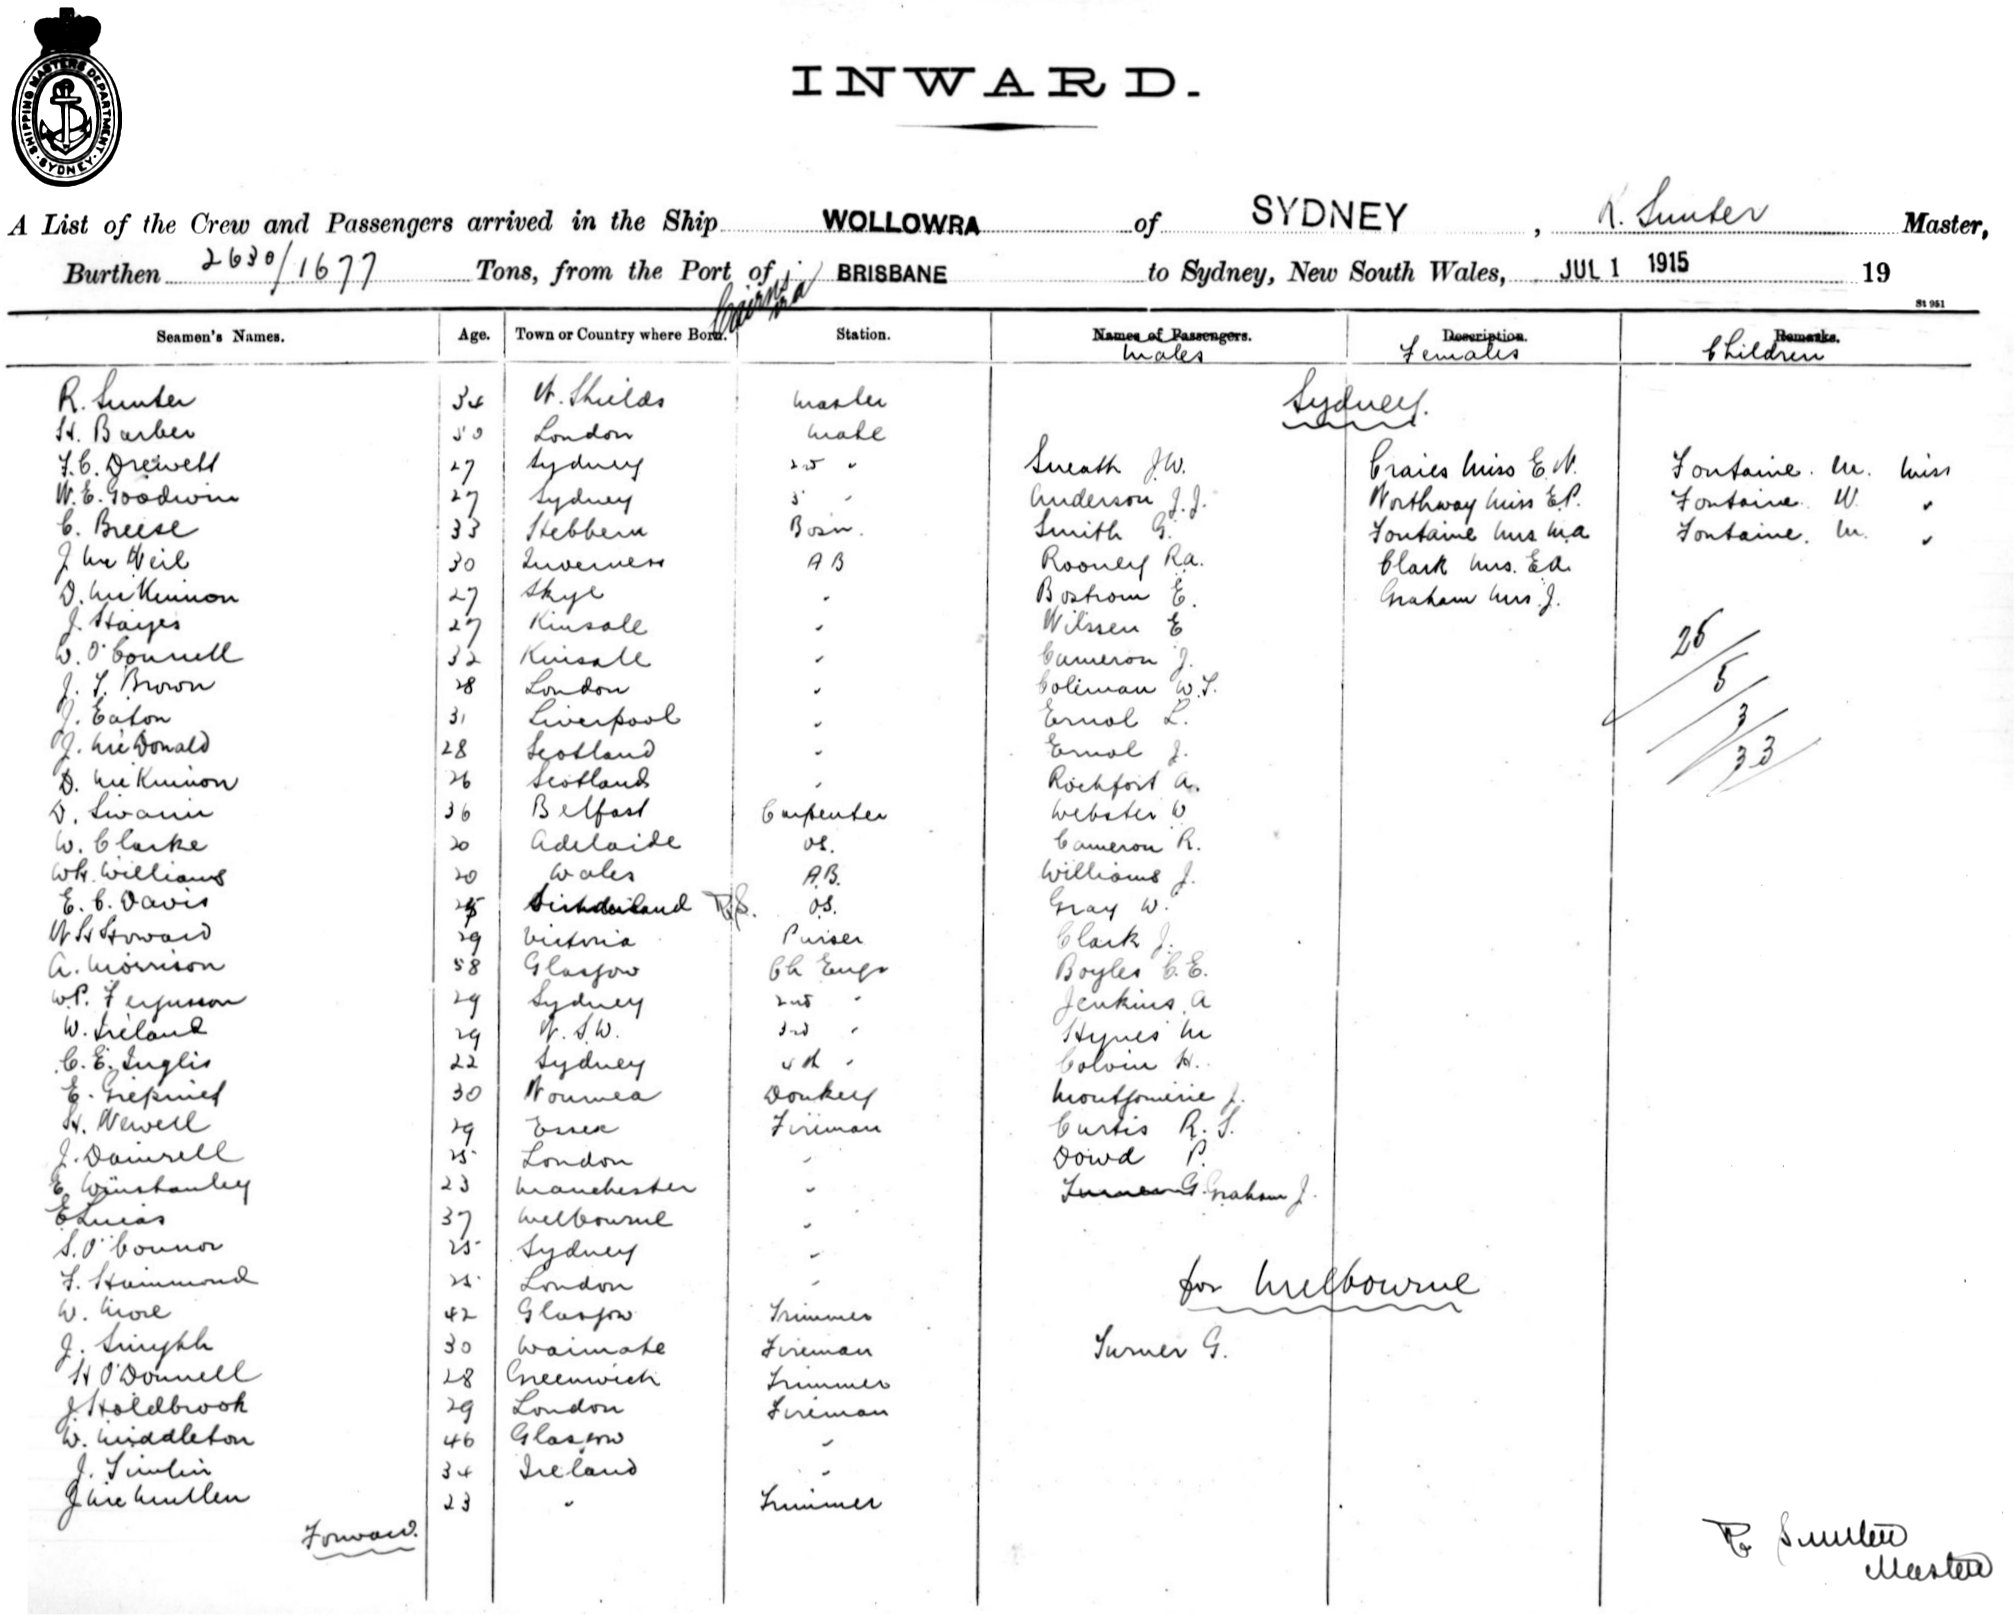 SHIPPING MASTERS DEPARTMENT · SYDNEY ·
INWARD.
A List of the Crew and Passengers arrived in the Ship WOLLOWRA of SYDNEY, R. Sunter Master,
Burthen 2630/1677 Tons, from the Port of Cairns via BRISBANE to Sydney, New South Wales, JUL 1 1915 19
St 951
Seamen's Names. Age. Town or Country where Born. Station. Names of Passengers. Description. Remarks.
Males Females Children
R. Sunter 34 N. Shields Master Sydney.
H. Barber 50 London Mate
F.C. Drewett 27 Sydney 2nd " Sneath J.W. Craies Miss E.N. Fontaine. M. Miss
W.E. Goodwin 27 Sydney 3 " Anderson J.J. Northway Miss E.P. Fontaine. W. "
C. Breese 33 Bosn. Smith G. Fontaine Mrs M.A Fontaine. M. "
J. McNeil 30 Inverness AB Rooney R.A. Clark Mrs. E.A.
D. McKinnon 27 Skye " Bostrom E. Graham Mrs. J.
J. Hayes 27 Kinsale " Nilssen E 25
W. O'Connell 32 Kinsale " Cameron J. 5
J. F. Brown 28 London " Coleman W.F. 3
J. Eaton 31 Liverpool " L. 33
J. McDonald 28 Scotland " J.
D. McKinnon 26 Scotland " Rochfort A.
D. Swann 36 Belfast Carpenter Webster W
W. Clarke 20 Adelaide OS. Cameron R.
WH. Williams 20 Wales A.B. Williams J.
E. C. Davis R.S. O.S. Gray W.
N H Howard 29 Victoria Purser Clark J.
A. Morrison 58 Glasgow Ch Engr Boyles C.E.
W.P. Fergusson 29 Sydney 2nd " Jenkins A
W. Ireland 29 N.S.W. 3rd " Hynes M
C. E. Inglis 22 Sydney 4th " Colvin H.
E. 30 Noumea Donkey Montgomerie J.
H. Newell 29 Essex Fireman Curtis R. S.
J. Damrell 25 London " Dowd P.
E. Winstanley 23 Manchester " Turner G. Graham J.
E Lucas 37 Melbourne "
S. O'Connor 25 Sydney "
F. Hammond 25 London " for Melbourne
W. More 42 Glasgow Trimmer
J. Smythe 30 Waimate Fireman Turner G.
H O'Donnell 28 Greenwich Trimmer
J Holdbrook 29 London Fireman
W. Middleton 46 Glasgow "
J. Timlin 34 Ireland "
J McMullen 23 " Trimmer
Forward.
R Sunter
Master